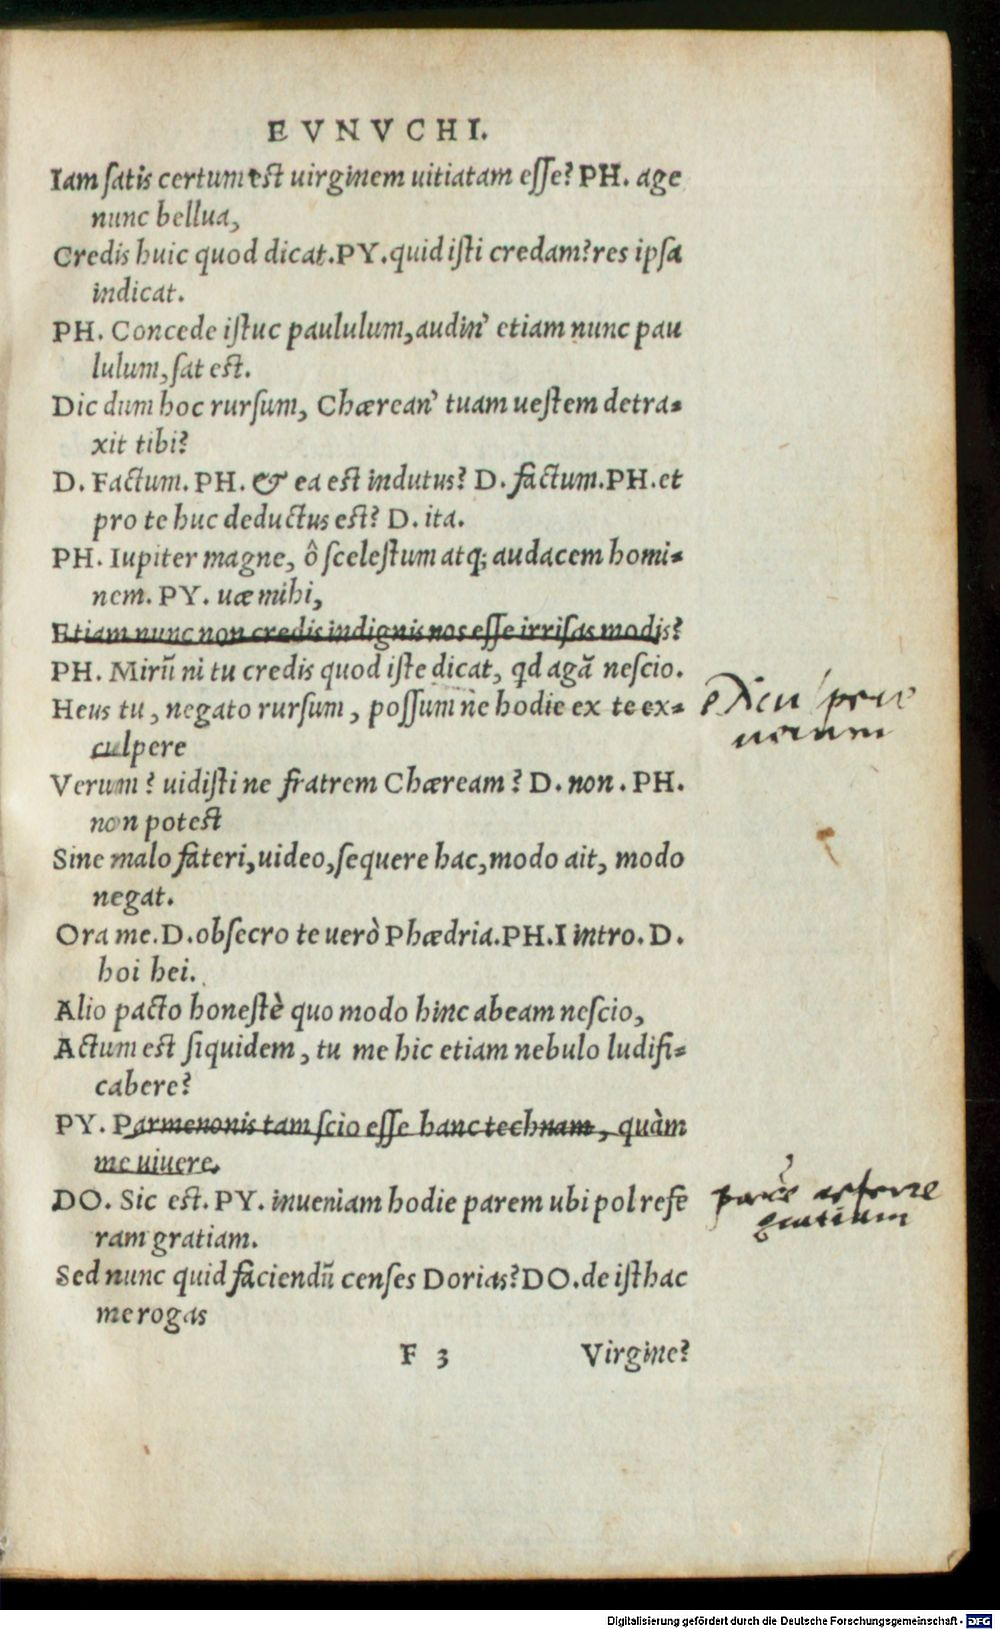 EVNVCHI.
Iam satis certum est uirginem uitiatam esse? PH. age
nunc bellua,
Credis huic quod dicat. PY. quid isti credam? res ipsa
indicat.
PH. Concede istuc paululum, audin' etiam nunc pau
lulum, sat est.
Dic dum hoc rursum, Chærean' tuam uestem detra-
xit tibi?
D. Factum. PH. & ea est indutus? D. factum. PH. et
pro te huc deductus est? D. ita.
PH. Iupiter magne, ô scelestum atq; audacem homi-
nem. PY. uæ mihi,
Etiam nunc non credis indignis nos esse irrisas modis?
PH. Mirũ ni tu credis quod iste dicat, qd agã nescio.
Heus tu, negato rursum, possum ne hodie ex te ex-
culpere
Verum? uidisti ne fratrem Chæream? D. non. PH.
non potest
Sine malo fateri, uideo, sequere hac, modo ait, modo
negat.
Ora me. D. obsecro te uerò Phædria. PH. I intro. D.
hoi hei.
Alio pacto honestè quo modo hinc abeam nescio,
Actum est siquidem, tu me hic etiam nebulo ludifi-
cabere?
PY. Parmenonis tam scio esse hanc technam, quàm
me uiuere.
DO. Sic est. PY. inueniam hodie parem ubi pol refe
ram gratiam.
Sed nunc quid faciendũ censes Dorias? DO. de isthac
me rogas
F 3 Virgine?
exculpere
uerum
gratiam
Digitalisierung gefördert durch die Deutsche Forschungsgemeinschaft - DFG